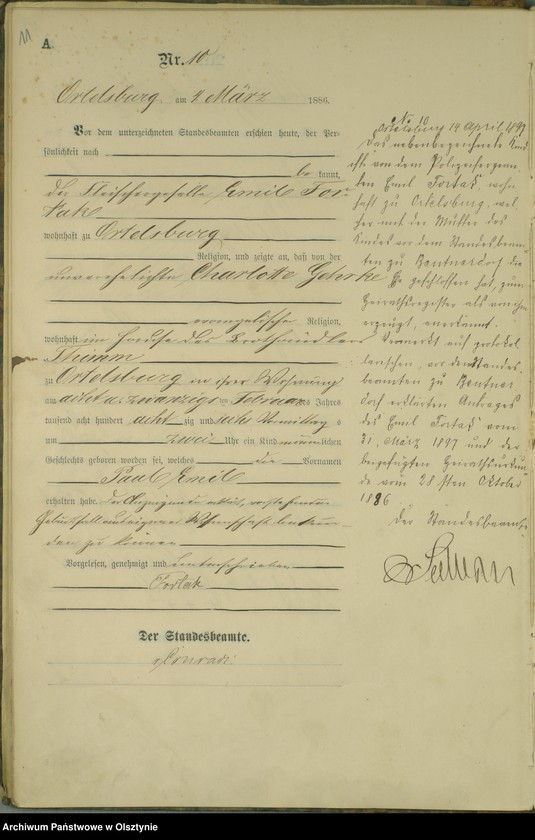 11
A.
Nr. 10
Ortelsburg am 4. März 1886.
Vor dem unterzeichneten Standesbeamten erschien heute, der Per-
sönlichkeit nach
be kannt,
der Fleischergeselle Emil For-
tak
wohnhaft zu Ortelsburg
Religion, und zeigte an, daß von der
unverehelichte Charlotte Gehrke
evangelische Religion,
wohnhaft im Hause des
Thimm
zu Ortelsburg in ihrer Wohnung
am acht u. zwanzigsten Februar des Jahres
tausend acht hundert acht zig und sechs Vormittag s
um zwei Uhr ein Kind männlichen
Geschlechts geboren worden sei, welches die Vornamen
Paul Emil
erhalten habe. Der Anzeigende erklärt, vorstehenden
Geburtsfall aus eigener Wissenschaft bekun-
den zu können
Vorgelesen, genehmigt und unterschrieben
Fortak
Der Standesbeamte.
Conradi
No. 10
Ortelsburg 14 April 1897
Das nebenbezeichnete Kind
ist von dem
ten Emil Fortak, wohn
haft zu Ortelsburg, wel
cher mit der Mutter des
Kindes vor dem Standesbeam
ten zu Beutnerdorf die
Ehe geschlossen hat, zum
Heirathsregister als von ihm
erzeugt, anerkannt.
Vermerkt auf protokol
larischen, vor dem Standes-
beamten zu Beutner
dorf erklärten Antrages
des Emil Fortak vom
31. März 1897 und der
beigefügten Heirathsurkun
de vom 28 sten Oktober
1886
Der Standesbeamte
Archiwum Państwowe w Olsztynie